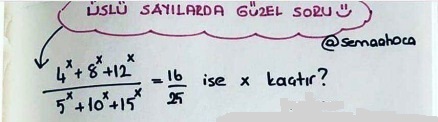 ÜSLÜ SAYILARDA GÜZEL SORU
@semaahoca
4^x + 8^x + 12^x
5^x + 10^x + 15^x
= 16/25 ise x kaçtır?